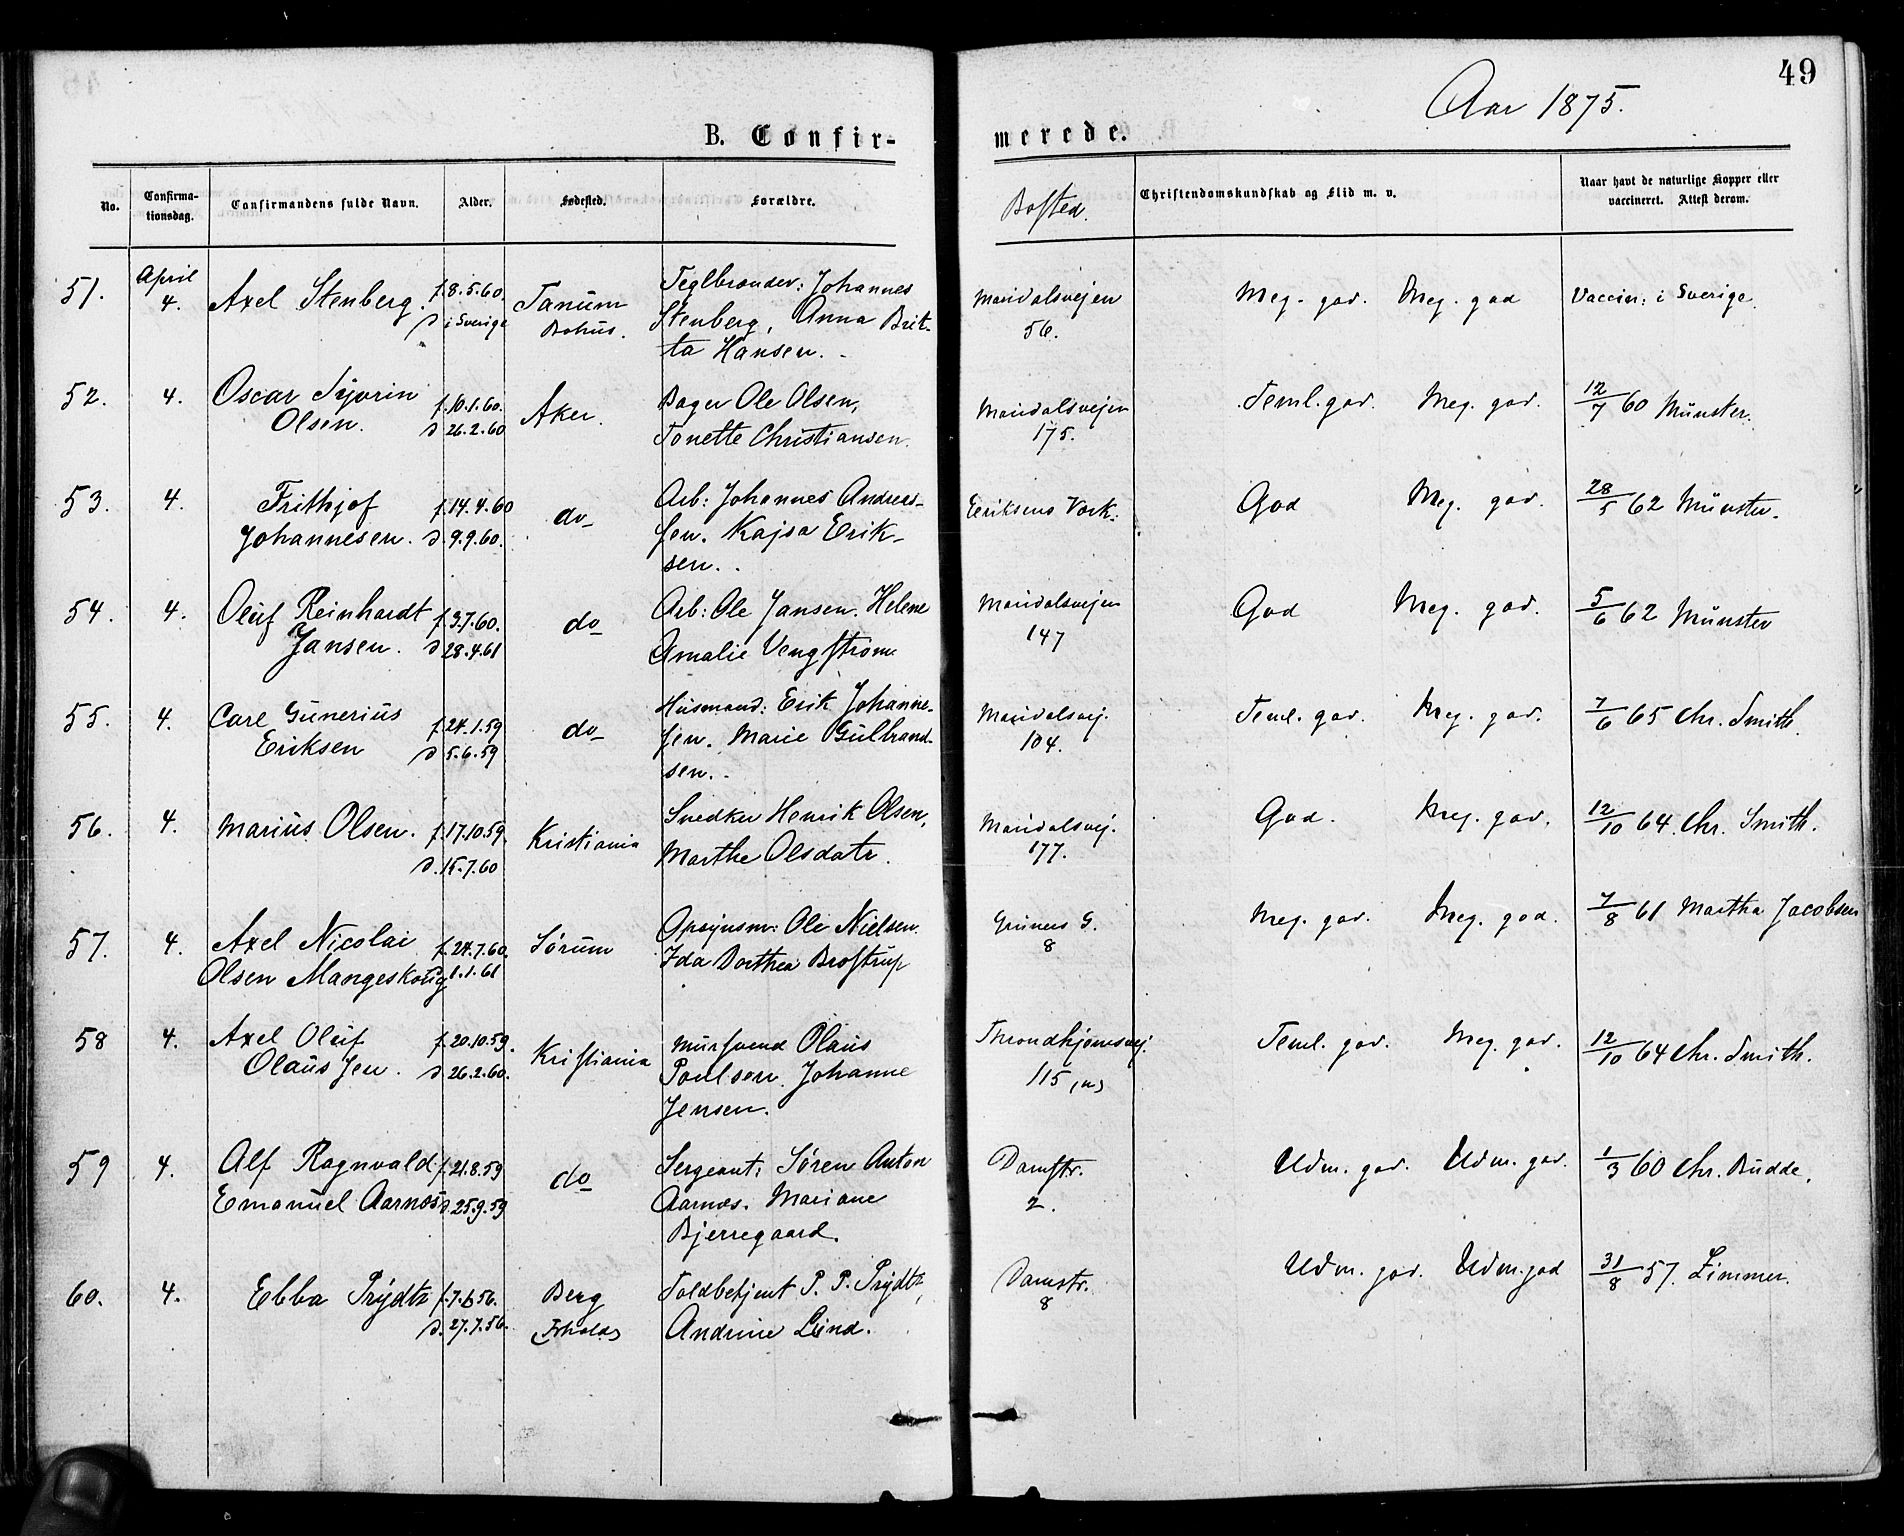 49
Aar 1875.
B. Confir-
merede.
No.
Confirma-
tionsdag.
Confirmandens fulde Navn.
Alder.
Fødested.
Forældre.
Bosted.
Christendomskundskab og Flid m. v.
Naar havt de naturlige Kopper eller
vaccineret. Attest derom.
51. April 4. Axel Stenberg. f. 8.5.60. Tanum Teglbrænder: Johannes Maridalsvejen Meg. god. Meg. god Vaccin: i Sverige
D i Sverige Bohus. Stenberg, Anna Brit- 56.
ta Hansen.
52. 4. Oscar f. 10.1.60. Aker. Bager Ole Olsen, Maridalsvejen Teml. god. Meg. god. 12/7 60 Münster.
Olsen. D 26.2.60 Tonette Christiansen. 175.
53. 4. Frithjof f. 14.4.60 do Arb: Johannes Andreas- Eriksens Værk: God Meg. god. 28/5 62 Münster.
Johannesen. D. 9.9.60. sen. Kajsa Erik-
sen.
54. 4. Oluf Reinhardt f. 3.7.60. do Arb: Ole Jansen. Helene Maridalsvejen God Meg. god. 5/6 62 Münster
Jansen. D 28.4.61 Amalie Vengstrøm 147
55. 4. Carl Gunerius f. 24.1.59 do Husmand: Erik Johanne- Maridalsvej. Teml. god. Meg. god. 7/6 65 Chr. Smith.
Eriksen D 5.6.59 sen. Marie Gulbrand- 104.
sen.
56. 4. Marius Olsen. f. 17.10.59. Kristiania Snedker Henrik Olsen, Maridalsvej. God. Meg. god. 12/10 64. Chr. Smith.
D. 15.7.60 Marthe Olsdatr. 177.
57. 4. Axel Nicolai f. 24.7.60. Sørum Opsynsm: Ole Nielsen. Grüners G. Meg. god. Meg. god. 7/8 61 Martha Jacobsen
Olsen Mangeskoug D 1.1.61 Ida Dorthea Brostrup 8
58 4. Axel Oluf f. 20.10.59. Kristiania Mursvend Olaus Throndhjemsvej. Teml. god. Meg. god. 12/10 64 Chr. Smith.
Olaus Jen. D 26.2.60. Poulsen. Johanne 115 (n)
Jensen.
59 4. Alf Ragnvald f. 21.8.59 do Sergeant: Søren Anton Damstr. Udm. god. Udm. god. 1/3 60 Chr. Budde.
Emanuel Aarnæs D. 25.9.59 Aarnæs. Mariane 2.
Bjerregaard.
60. 4. Ebba Prydtz f. 7.6.56. Berg Toldbetjent P. P. Prydtz, Damstr. Udm. god. Udm. god 31/8 57. Limmer.
D. 27.7.56. Andrine Lund. 8